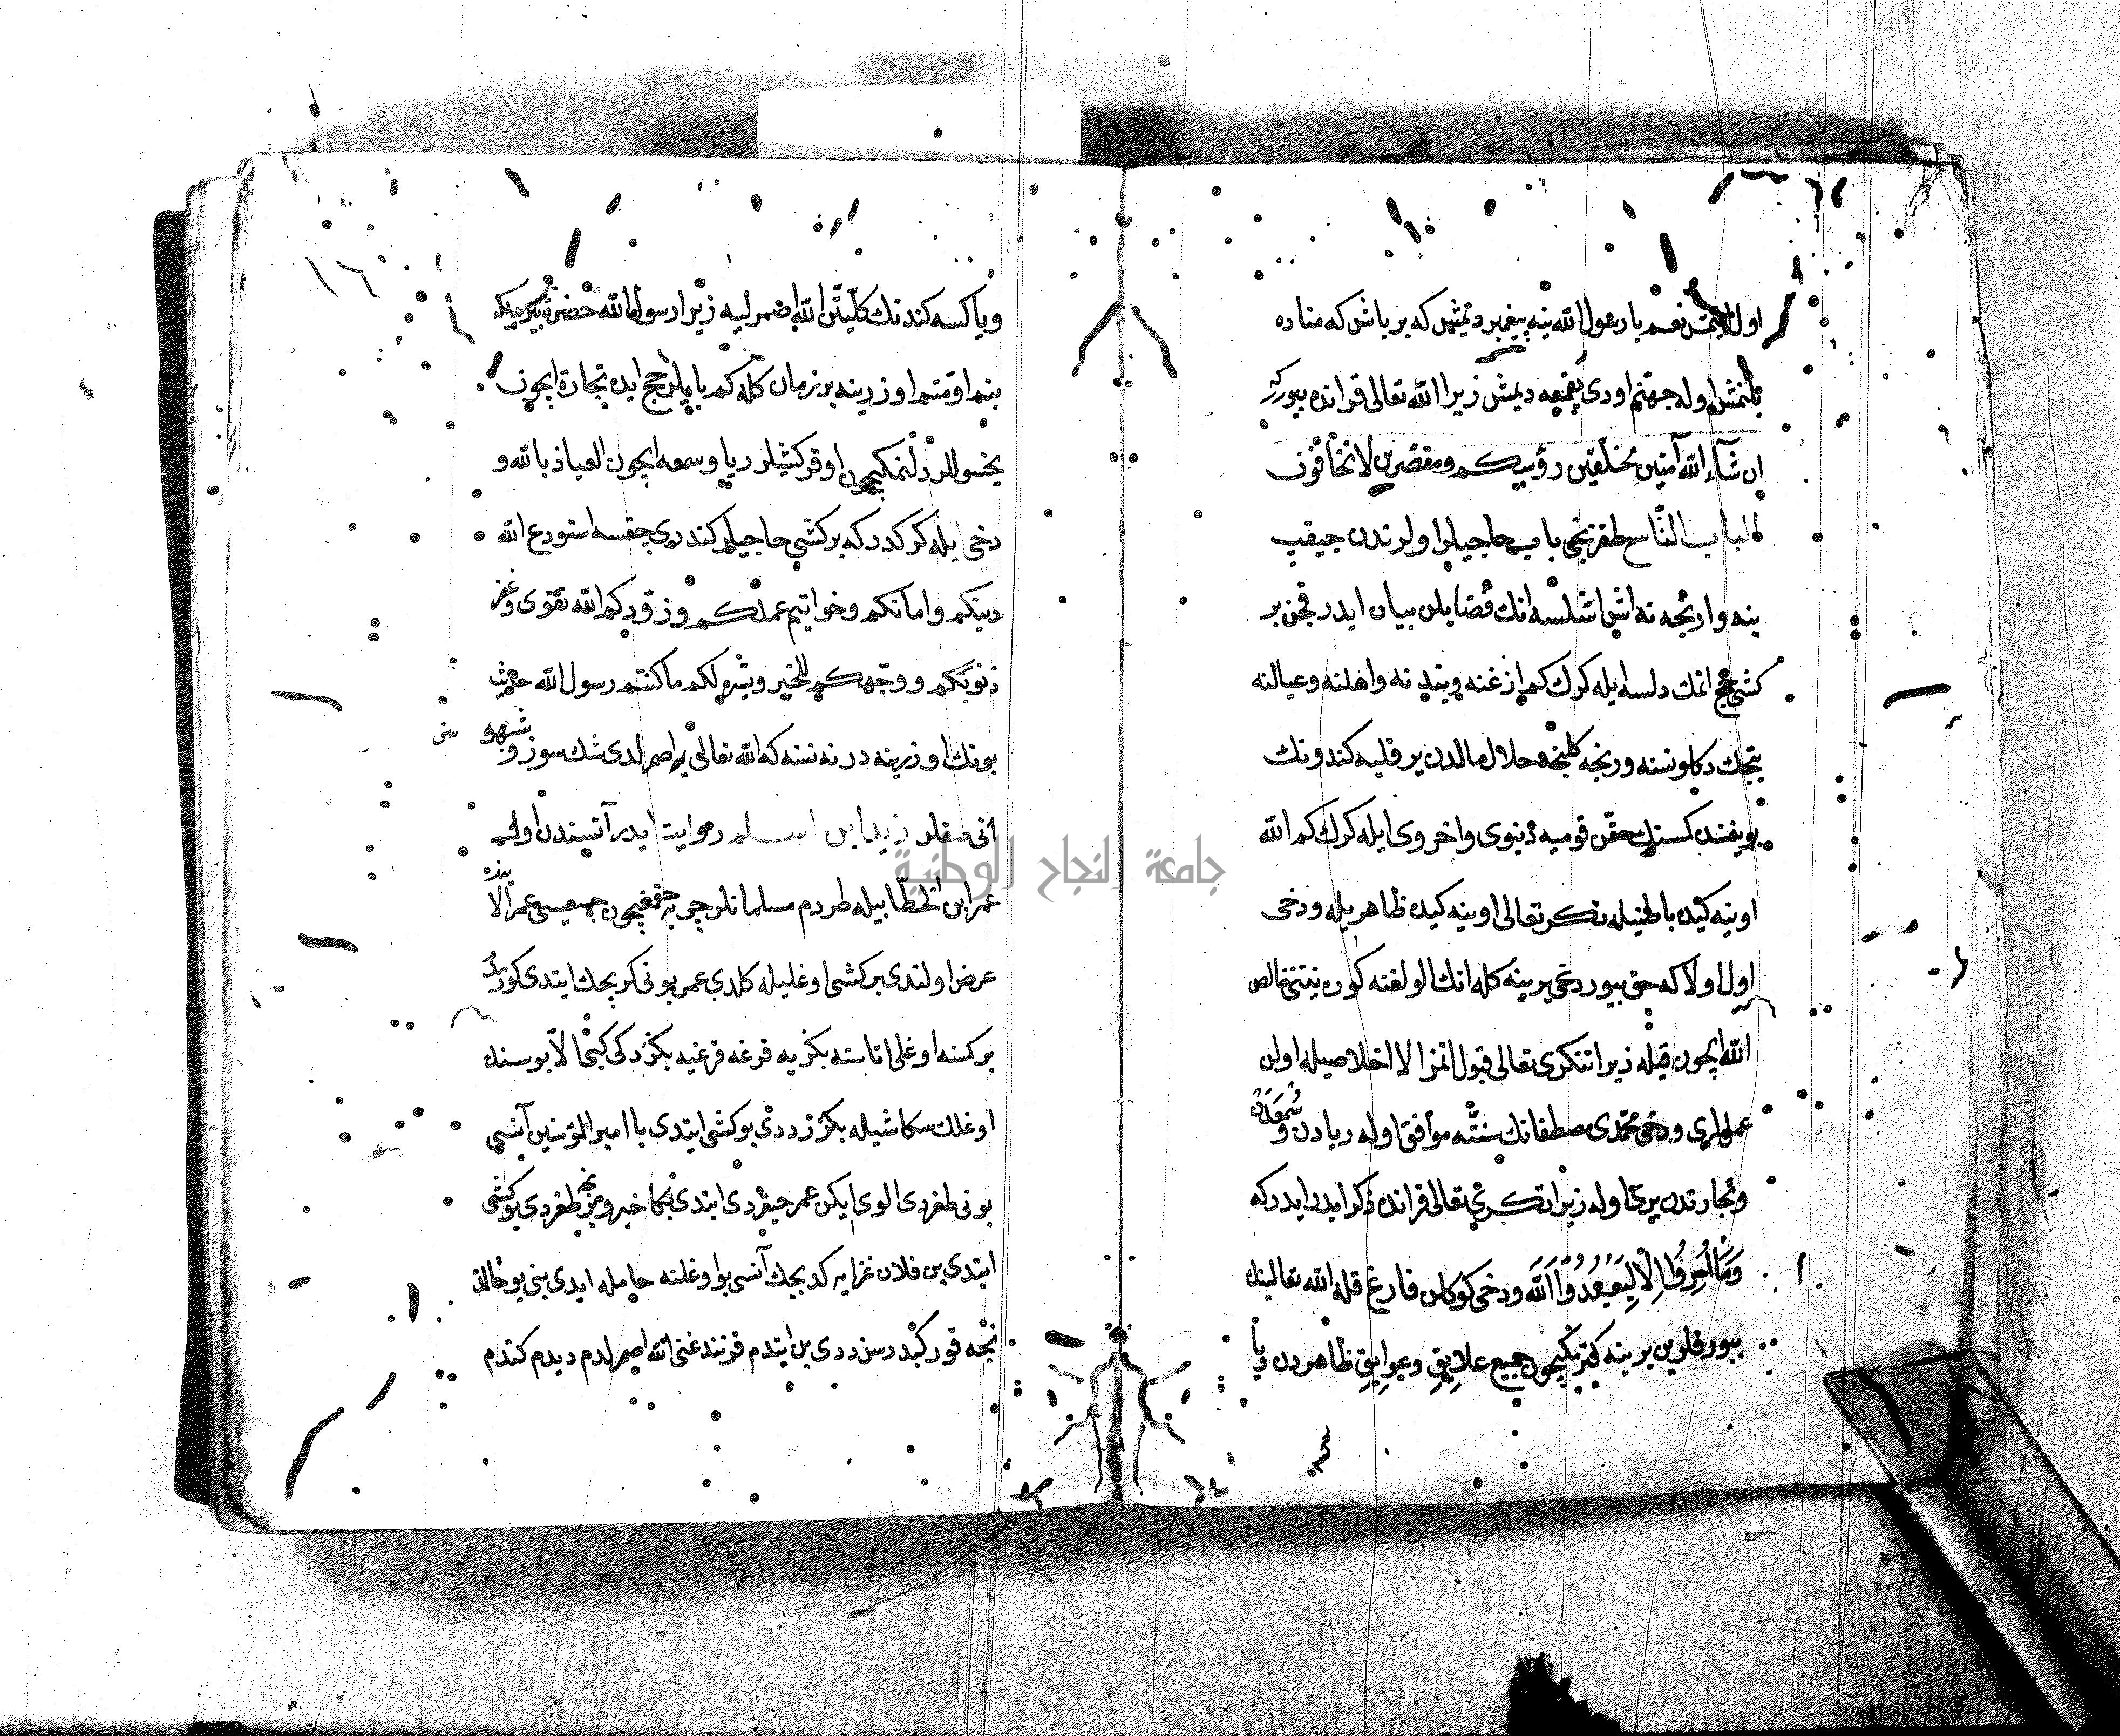 اول ایتمش نعم یا رسول الله ینه پیغمبر دیمش که بر باش که مناده
یلنمش اوله جهنم اودی یقمیه دیمش زیرا الله تعالی قرانده بیورر
ان شآء الله آمنین محلّقین رؤسکم ومقصّرین لا تخافون
الباب التّاسع طقزنجی باب حاجیلر اولرندن چیقب
ینه وارنجه نه اش اشلسه انك فضایلن بیان ایدر قچن بر
كشی حج اتمك دلسه ایله كرك كم ازغنه ویتدنه واهلنه وعیالنه
یتجك دكلو نسنه ورنجه كلنجه حلال مالدن یرقلیه كندونك
بوینندن كسنك حقن قومیه دنیوی واخروی ایله كرك كم الله
اوینه كیده باطنیله تكر تعالی اوینه كیده ظاهر یله ودخی
اول اولا كه حق بیوردغی یرینه كله انك اولولغنه كوره نیتنی خالص
الله ایچون قیله زیرا تنكری تعالی قبول اتمز الا اخلاصیله اولن
عمللری ودخی محمّدی مصطفانك سنتنه موافق اوله ریادن و سمعه‌دن
وتجارتدن بری اوله زیرا تكری تعالی قرانده ذكر ایدر ایدر كه
وَمَا اُمِرُوا اِلَّا لِیَعْبُدُوا اللّٰهَ ودخی كوكلن فارغ قله الله تعالینك
بیورقلرین یرینه كترمكیچون جمیع علایق وعوایق ظاهردن ویا
١٦
ویا كسه كندنك كلیتن الله اضمرلیه زیرا رسول الله حضرتی بیرر كه
بنم اوقتم اوزرینه بر زمان كله كم بایلر حج ایده تجارة ایچون
یخسوللر دلنمكیچون اوقر كشیلر ریا وسمعه ایچون العیاذ بالله و
دخی ایله كركدر كه بر كشی حاجیلر كندری چقسه استودع الله
دینكم وامانتكم وخواتیم عملكم وزوّدكم الله تقوی وغفر
ذنوبكم ووجّهكم للخیر ویسّر لكم ما كنتم رسول الله حدیث
بونك اوزرینه در نه نسنه كه الله تعالی یه اصمرلدی شك سوز و
انی صقلر زید ابن اسلم روایت ایدر آتسندن اولكم
عمر ابن الخطّابیله طردم مسلمانلر چریه چقمقیچون جمعیسی عمر الا
عرض اولندی بر كشی اوغلیله كلدی عمر بونی كریجك ایتدی كوررد
بر كسنه اوغلی اتاسنه بكزیه قرغه قرغیه بكزر دكی كبی الا بو سنك
اوغلك سكا شیله بكزر ددی بو كشی ایتدی یا امیر المؤمنین آنسی
بونی طغردی الوی ایكن عمر چیغردی ایتدی بكا خبر ور نجه طغردی بو كشی
ایتدی بن فلان غزایه كدیجك آنسی بو اوغلنه حامله ایدی بنی بو حالده
نجه قور كیدرسن ددی بن ایتدم فرزندغنی الله اصمرلدم دیدم كتدم